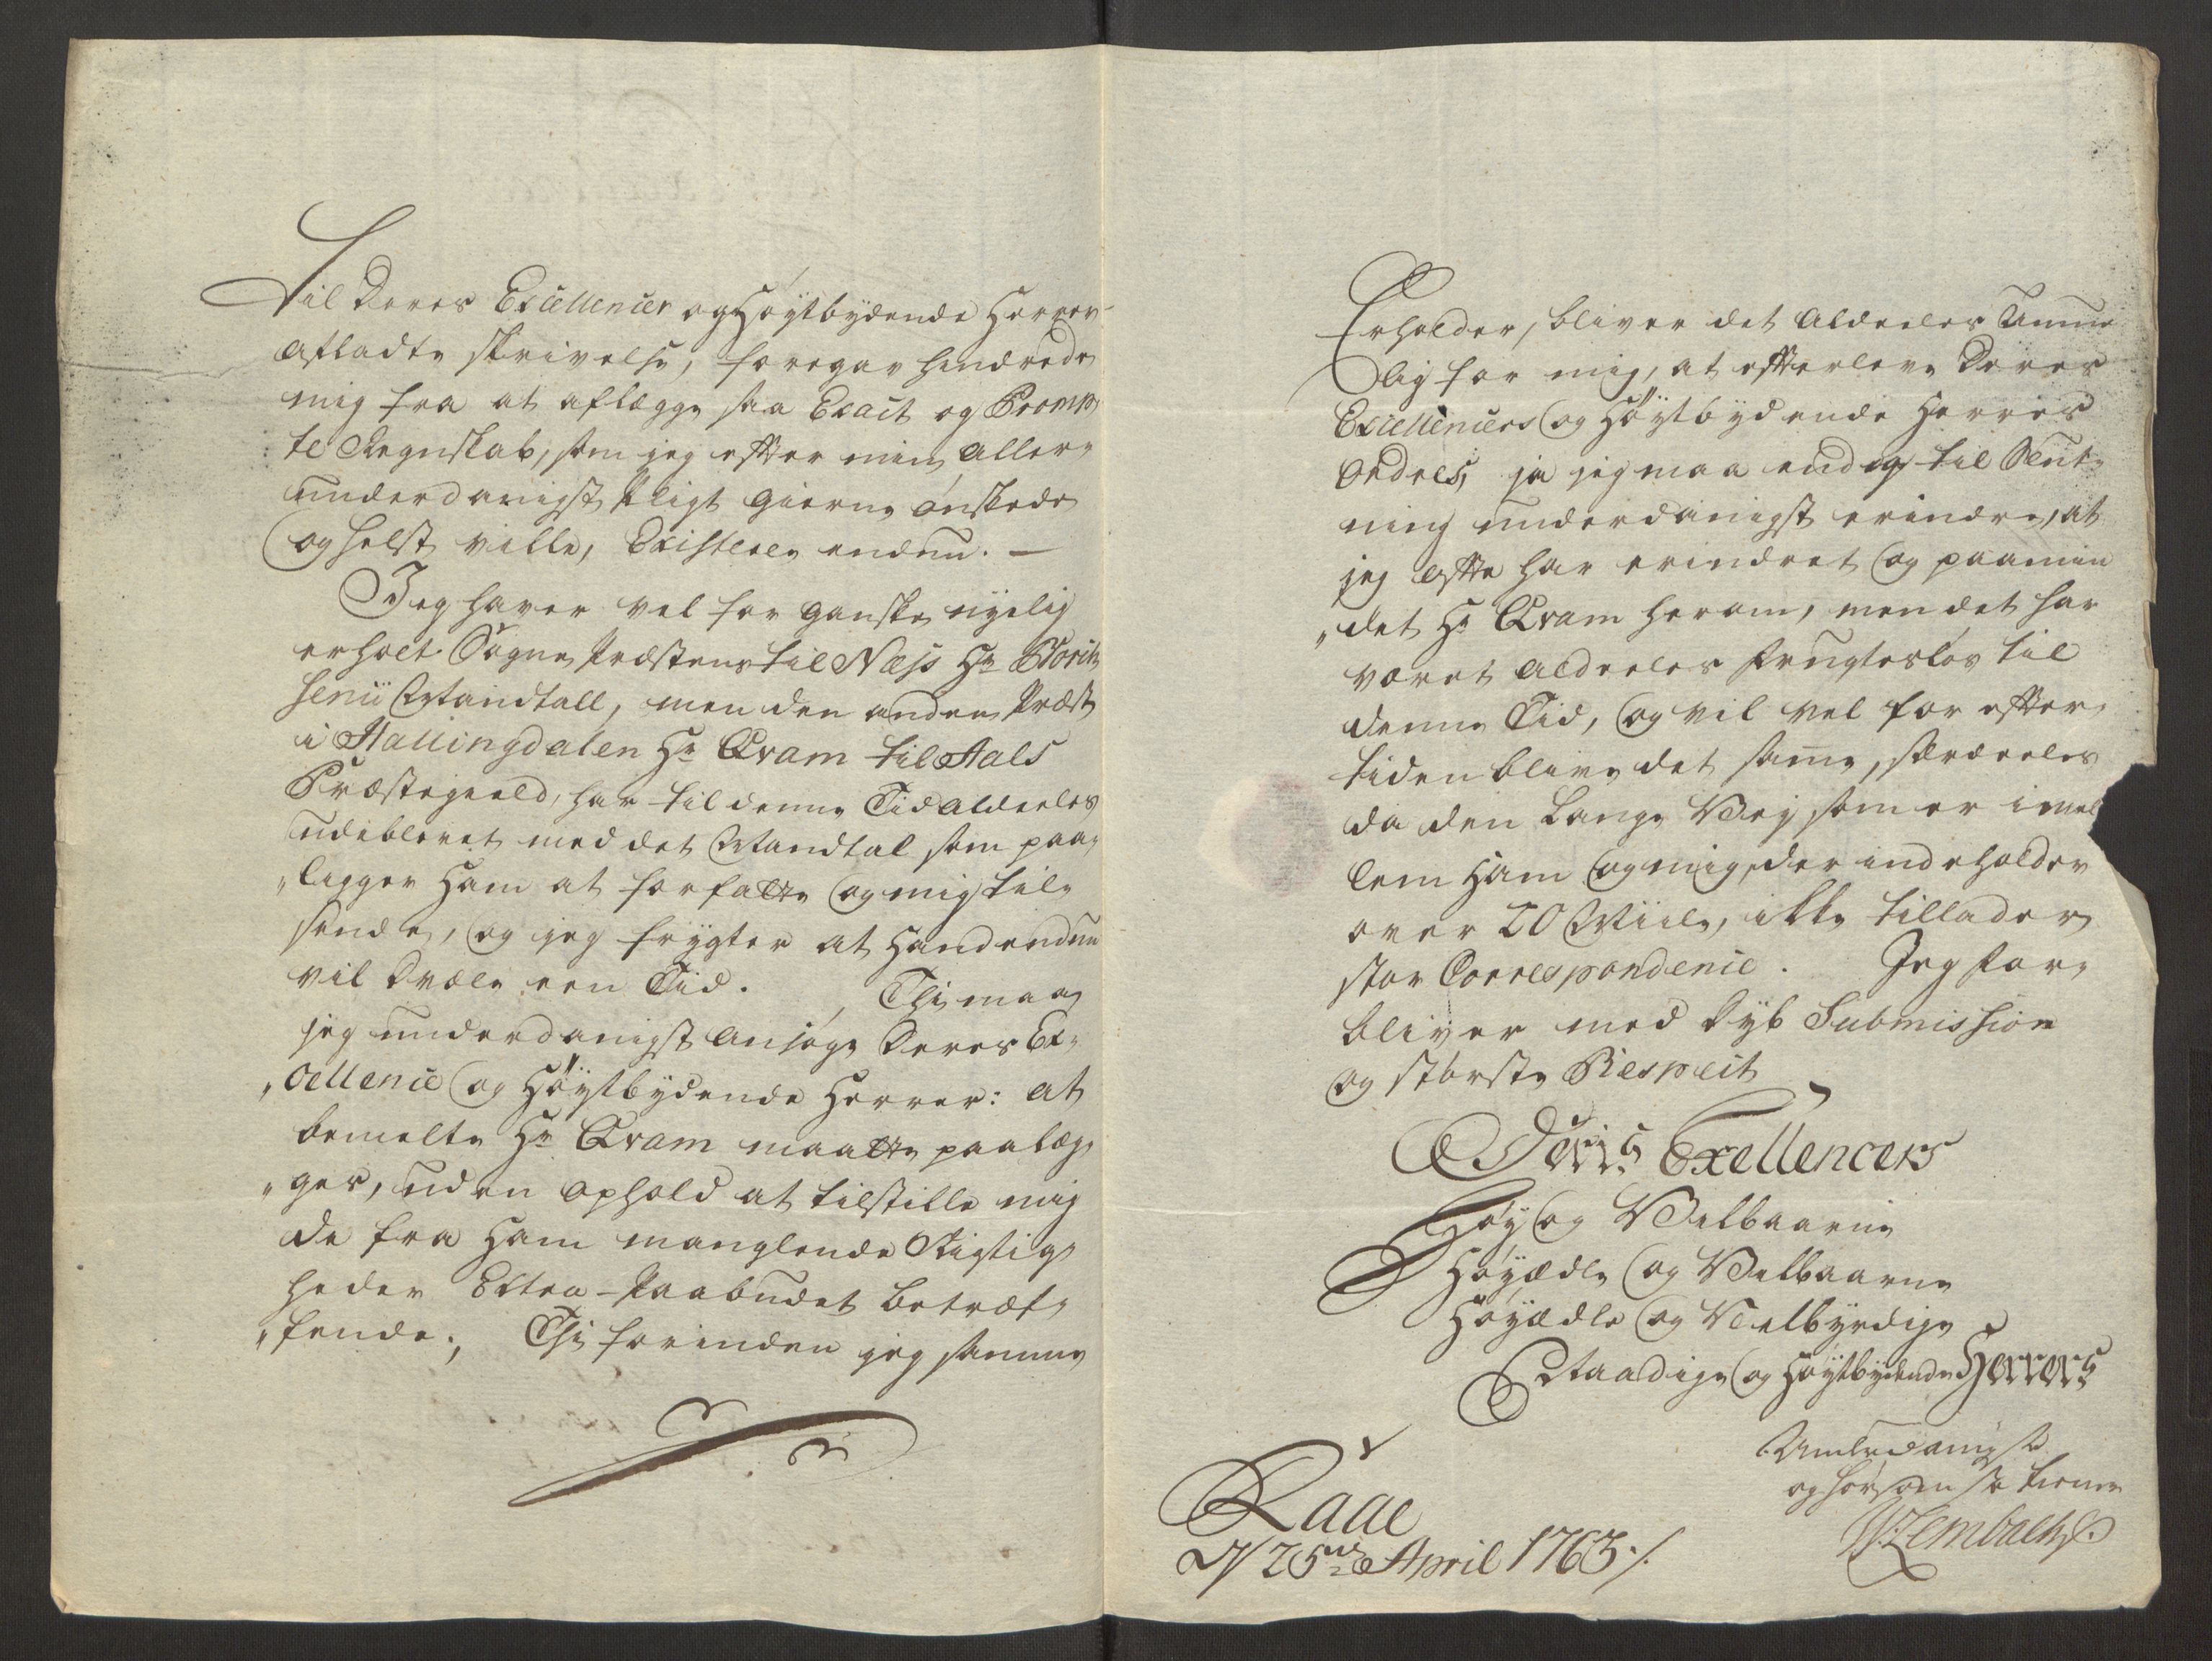 Til Deres Excellencer og Høytbydende Herrer
Afladte skrivelse, foregav hindrede
mig fra at aflægge saa Exact og Promp
te Regnskab, som jeg efter min aller-
underdanigst Pligt gierne ønskede
og helst ville, Existerer endnu. —
Jeg haver vel for ganske nyelig
erholt Sogne Præstens til Næss Hr
Mandtall, men den anden Præst
i Hallingdalen Hr Qvam til Aals
Præstegield, har til denne Tid aldeeles
udeblevet med det Mandtal som paa-
„ligger Ham at forfatte og mig til-
sende, og jeg frygter at Hand endnu
vil dvæle een Tid. Thi maa
jeg underdanigst ansøge Deres Ex-
„cellence og Høytbydende Herrer: at
bemelte Hr Qvam maatte paalæg-
„ges, uden ophold at tilstille mig
de fra Ham manglende Rigtig-
heder Extra-Paabudet betræf-
„fende; Thi forinden jeg samme
Erholder, bliver det aldeeles Umue-
lig for mig, at efterleve Deres
Excellencers og Høytbydende Herrers
Ordres, ja jeg maa endog til Slut-
ning underdanigst erindre, at
jeg ofte har erindret og paamin
„det Hr Qvam herom, men det har
været aldeeles frugtesløs til
denne Tid, og vil vel for efter-
tiden blive det samme, særdeeles
da den Lange Vej som er imel
lem Ham og mig, der indeholder
over 20 Miile, ikke tillader
stor Correspondence. Jeg for-
bliver med dyb Submission
og største Respect
Deris Exellencers
Høy og Velbaarne
Høyædle og Velbaarne
Høyædle og Velbyrdige
Naadige og Høytbydende Herrers
Underdanigste
og hørsomste tiener
W: Zembach
Raae
d 25de April 1763 ./.